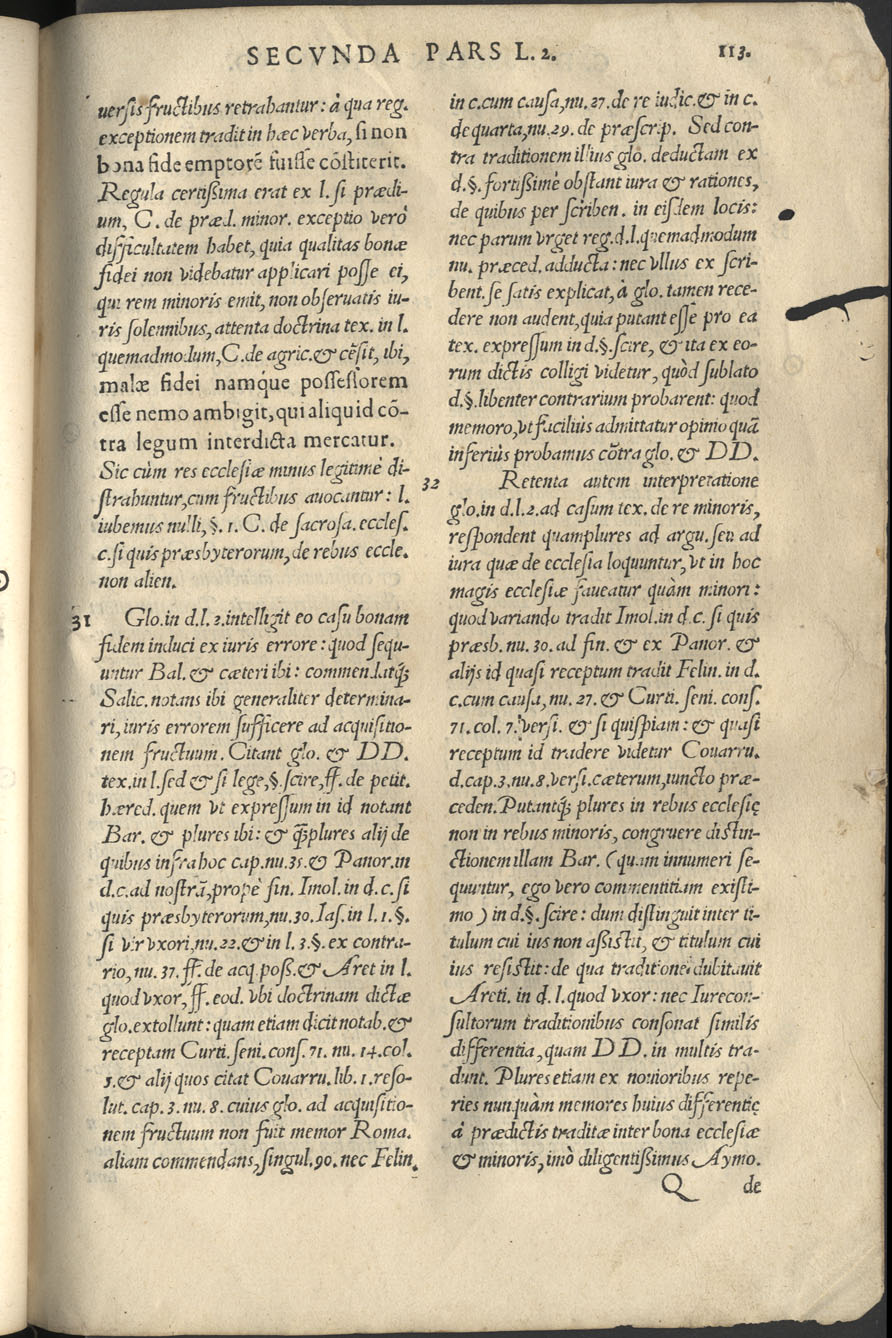 SECVNDA PARS L. 2. 113.
uersis fructibus retrahantur: à qua reg.
exceptionem tradit in hæc verba, si non
bona fide emptorẽ fuisse cõstiterit.
Regula certissima erat ex l. si prædi-
um, C. de præd. minor. exceptio verò
difficultatem habet, quia qualitas bonæ
fidei non videbatur applicari posse ei,
qui rem minoris emit, non obseruatis iu-
ris solennibus, attenta doctrina tex. in l.
quemadmodum, C. de agric. & cẽsit, ibi,
malæ fidei namque possessorem
esse nemo ambigit, qui aliquid cõ-
tra legum interdicta mercatur.
Sic cùm res ecclesiæ minus legitimè di-
strahuntur, cum fructibus auocantur: l.
iubemus nulli, §. 1. C. de sacrosa. eccles.
c. si quis præsbyterorum, de rebus eccle.
non alien.
31 Glo. in d. l. 2. intelligit eo casu bonam
fidem induci ex iuris errore: quod sequ-
untur Bal. & cæteri ibi: commendatq;
Salic. notans ibi generaliter determina-
ri, iuris errorem sufficere ad acquisitio-
nem fructuum. Citant glo. & DD.
tex. in l. sed & si lege, §. scire, ff. de petit.
hæred. quem vt expressum in id notant
Bar. & plures ibi: & q̃plures alij de
quibus infra hoc cap. nu. 35. & Panor. in
d. c. ad nostrã, propè fin. Imol. in d. c. si
quis præsbyterorum, nu. 30. Ias. in l. 1. §.
si vir vxori, nu. 22. & in l. 3. §. ex contra-
rio, nu. 37. ff. de acq. poss. & Aret in l.
quod vxor, ff. eod. vbi doctrinam dictæ
glo. extollunt: quam etiam dicit notab. &
receptam Curti. seni. cons. 71. nu. 14. col.
5. & alij quos citat Couarru. lib. 1. reso-
lut. cap. 3. nu. 8. cuius glo. ad acquisitio-
nem fructuum non fuit memor Roma.
aliam commendans, singul. 90. nec Felin.
in c. cum causa, nu. 27. de re iudic. & in c.
de quarta, nu. 29. de præscrip. Sed con-
tra traditionem illius glo. deductam ex
d. §. fortissimè obstant iura & rationes,
de quibus per scriben. in eisdem locis:
nec parum vrget reg. d. l. quemadmodum
nu. præced. adducta: nec vllus ex scri-
bent. se satis explicat, à glo. tamen rece-
dere non audent, quia putant esse pro ea
tex. expressum in d. §. scire, & ita ex eo-
rum dictis colligi videtur, quòd sublato
d. §. libenter contrarium probarent: quod
memoro, vt faciliùs admittatur opinio quã
inferiùs probamus cõtra glo. & DD.
32 Retenta autem interpretatione
glo. in d. l. 2. ad casum tex. de re minoris,
respondent quamplures ad argu. seu ad
iura quæ de ecclesia loquuntur, vt in hoc
magis ecclesiæ faueatur quàm minori:
quod variando tradit Imol. in d. c. si quis
præsb. nu. 30. ad fin. & ex Panor. &
alijs id quasi receptum tradit Felin. in d.
c. cum causa, nu. 27. & Curti. seni. cons.
71. col. 7. versi. & si quispiam: & quasi
receptum id tradere videtur Couarru.
d. cap. 3. nu. 8. versi. cæterum, iuncto præ-
ceden. Putantq; plures in rebus ecclesię
non in rebus minoris, congruere distin-
ctionem illam Bar. (quam innumeri se-
quuntur, ego vero commentitiam existi-
mo) in d. §. scire: dum distinguit inter ti-
tulum cui ius non assistit, & titulum cui
ius resistit: de qua traditione dubitauit
Areti. in d. l. quod vxor: nec Iurecon-
sultorum traditionibus consonat similis
differentia, quam DD. in multis tra-
dunt. Plures etiam ex nouioribus repe-
ries nunquàm memores huius differentię
à prædictis traditæ inter bona ecclesiæ
& minoris, imò diligentissimus Aymo.
Q de